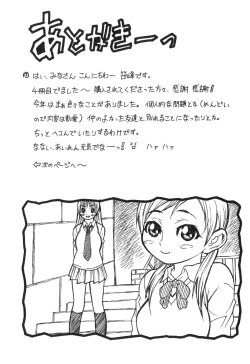 あとがきーっ
はい、みなさん こんにちわー 皆様です。
4冊目でました〜 購入されてくださった方々、感謝 感謝!!
今年はまぁ色々なことがありました。個人的な問題とも(めんどい
ので内容は割愛) 仲のよかった友達と別れることになったりとか。
ちっとヘコんでいたりするわけです。
なない、あいれん元気でなーっ!! ハァ ハァ
⇦次のページへ〜